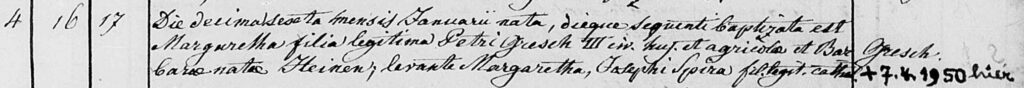 4 16 17 Die decima sexta mensis Januarii nata, dieque sequenti baptizata est
Margaretha filia legitima Petri Gresch III civ. huj. et agricolæ et Bar Gresch.
baræ natæ Heinen; levante Margaretha, Josephi Spira fil. legit. cathol. + 7. 4. 1950 hier